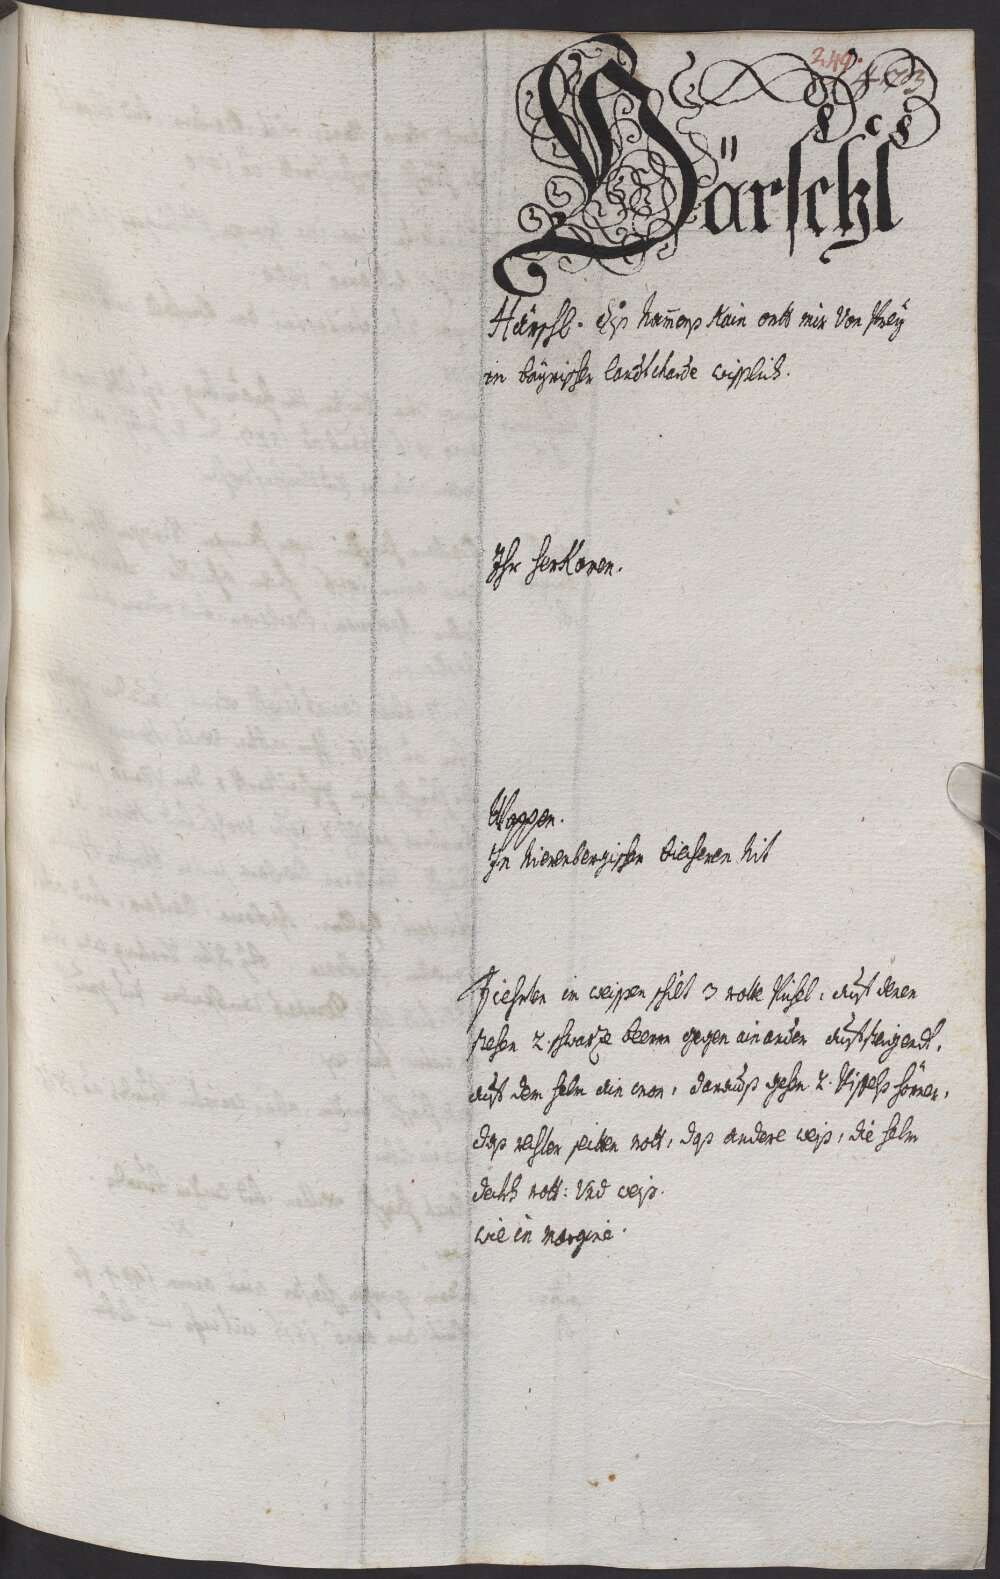 249.
Härschl
Härschl. diß Namens kain ortt mir von Freÿ
in baÿrischer landtcharde wisslich.
Ihr herkomen.
Wappen.
In Nierenbergischen biechern Nit
Fiehrten im weissen schilt 3 rotte Pühel, auf denen
stehen 2. schwarze beern gegen ainander aufsteigendt,
auf dem helm ain cron, darauß gehen 2. Pifflhs hörner,
daß rechter seitten rott, daß andere weiß, die helm
dekh rott: Und weiß.
wie in margine.